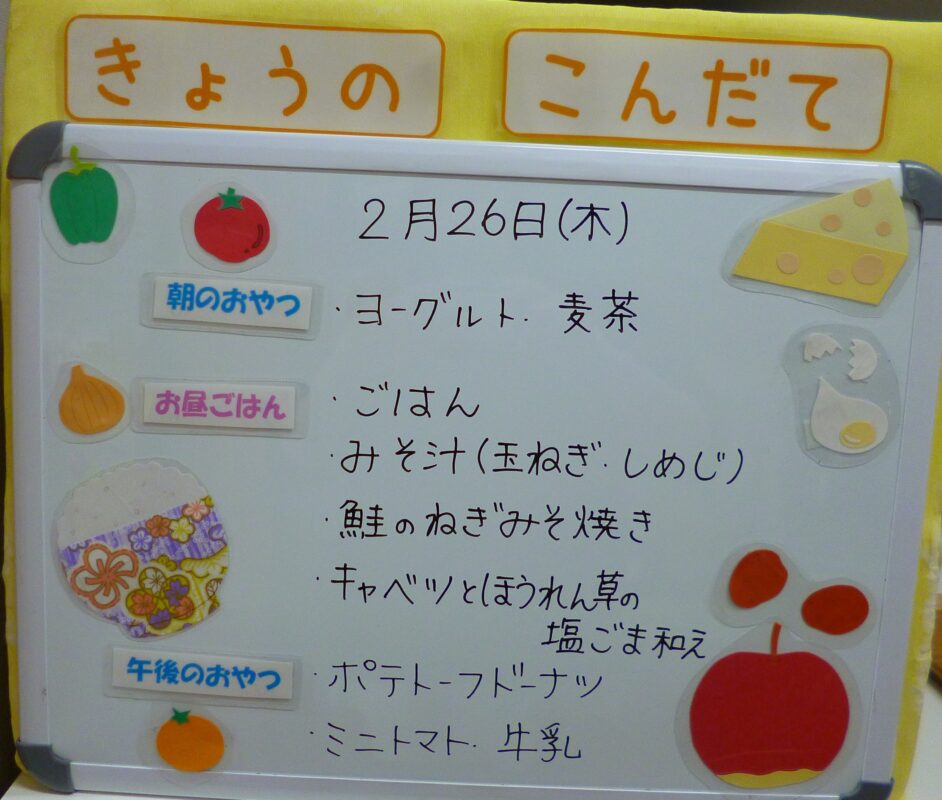 きょうの こんだて
2月26日(木)
朝のおやつ ・ヨーグルト・麦茶
お昼ごはん ・ごはん
・みそ汁(玉ねぎ・しめじ)
・鮭のねぎみそ焼き
・キャベツとほうれん草の
塩ごま和え
午後のおやつ ・ポテトーフドーナツ
・ミニトマト・牛乳